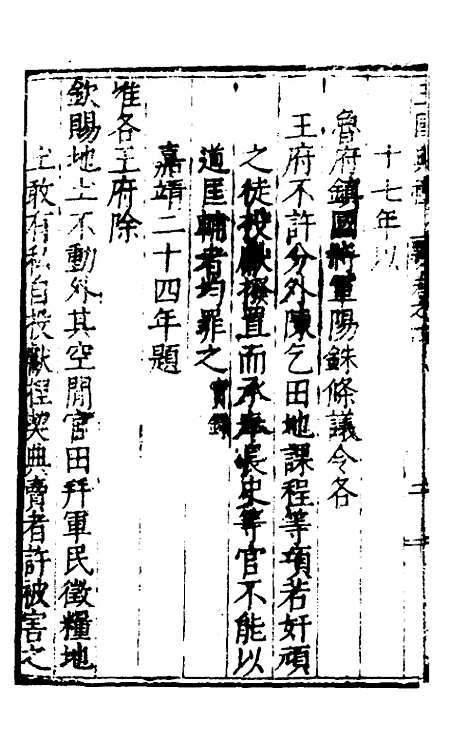 十七年以
魯府鎮國將軍陽銖條議令各
王府不許分外陳乞田地課程等項若奸頑
之徒投獻撥置而承奉長史等官不能以
道匡輔者均罪之實錄
嘉靖二十四年題
准各王府除
欽賜地土不動外其空閒官田并軍民徵糧地
土敢有私自投獻捏契典賣者許被害之